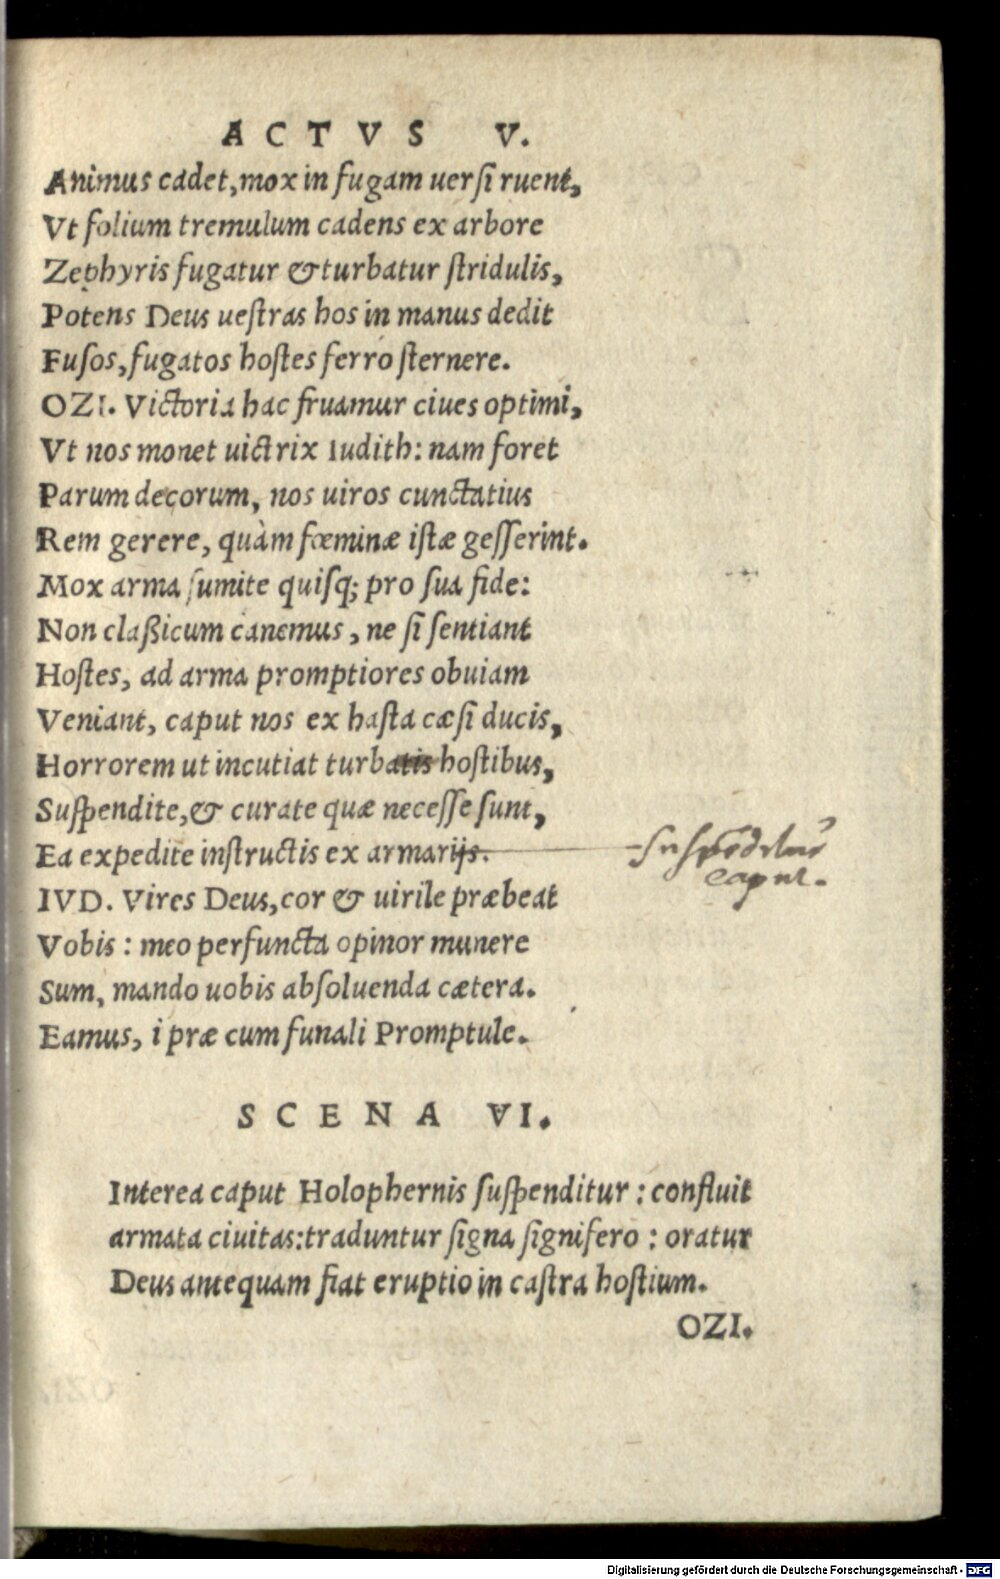 ACTVS V.
Animus cadet, mox in fugam uersi ruent,
Vt folium tremulum cadens ex arbore
Zephyris fugatur & turbatur stridulis,
Potens Deus uestras hos in manus dedit
Fusos, fugatos hostes ferro sternere.
OZI. Victoria hac fruamur ciues optimi,
Vt nos monet uictrix Iudith: nam foret
Parum decorum, nos uiros cunctatius
Rem gerere, quàm fœminæ istæ gesserint.
Mox arma sumite quisq; pro sua fide:
Non claßicum canemus, ne si sentiant
Hostes, ad arma promptiores obuiam
Veniant, caput nos ex hasta cæsi ducis,
Horrorem ut incutiat turbatis hostibus,
Suspendite, & curate quæ necesse sunt,
Ea expedite instructis ex armarijs.
Suspēditur
caput.
IVD. Vires Deus, cor & uirile præbeat
Vobis: meo perfuncta opinor munere
Sum, mando uobis absoluenda cætera.
Eamus, i præ cum funali Promptule.
SCENA VI.
Interea caput Holophernis suspenditur: confluit
armata ciuitas: traduntur signa signifero: oratur
Deus antequam fiat eruptio in castra hostium.
OZI.
Digitalisierung gefördert durch die Deutsche Forschungsgemeinschaft - DFG